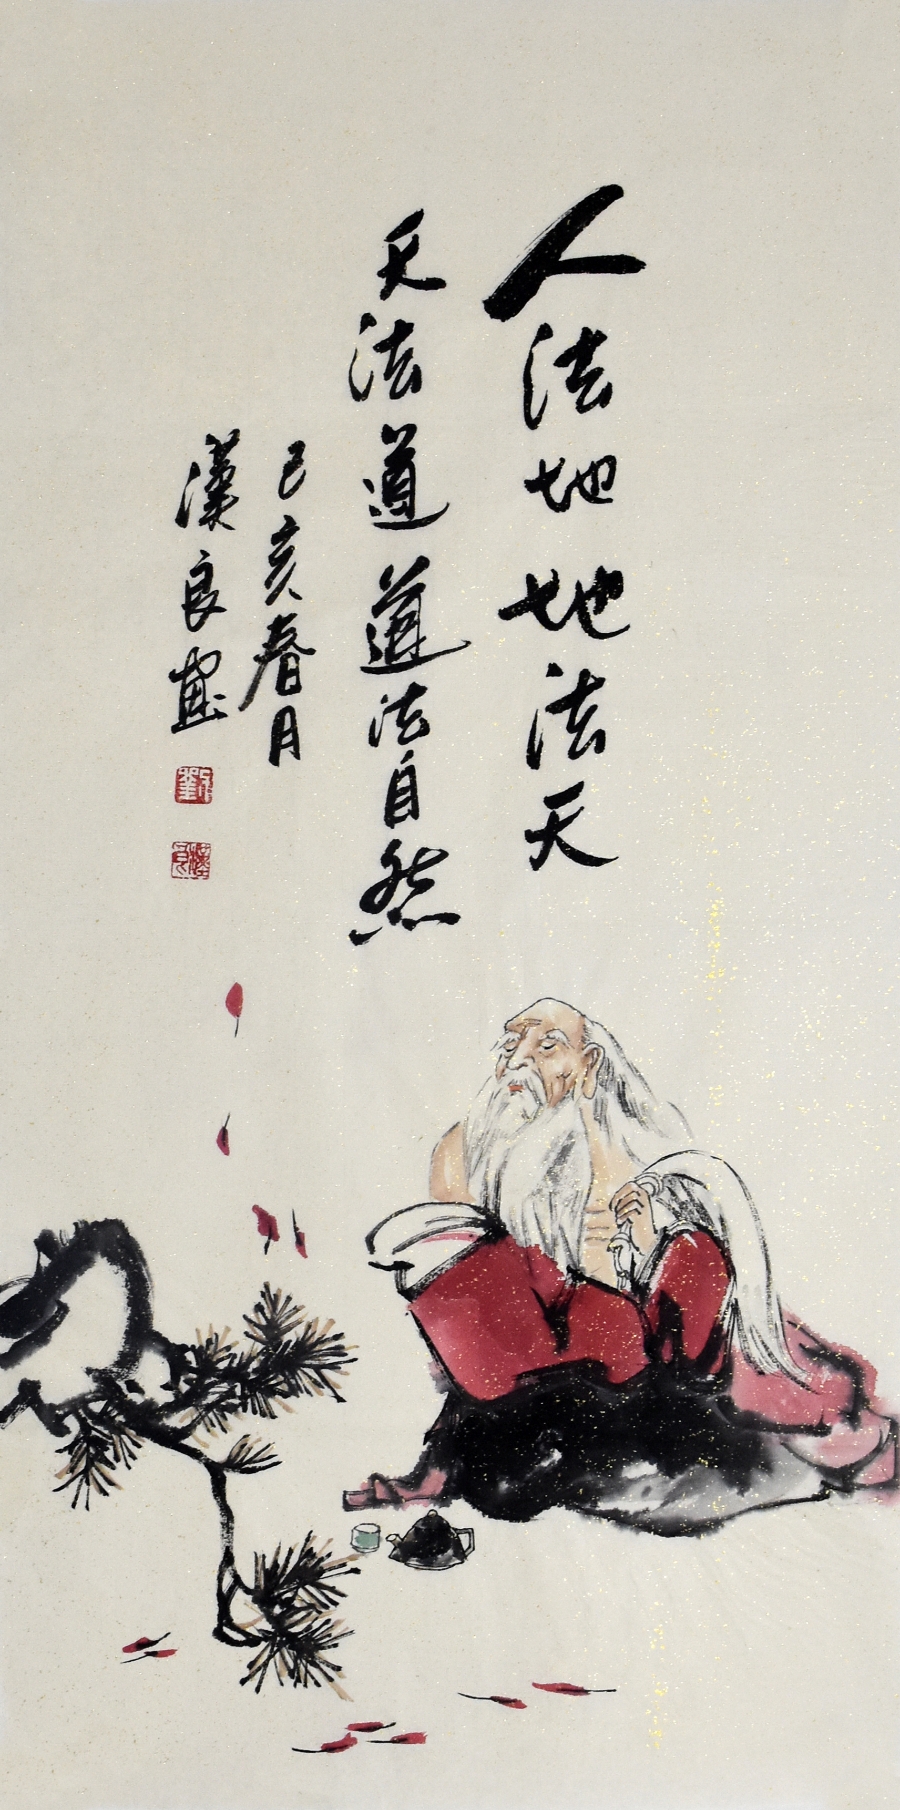 人法地地法天
天法道道法自然
己亥春月
漢良畫
劉
漢良